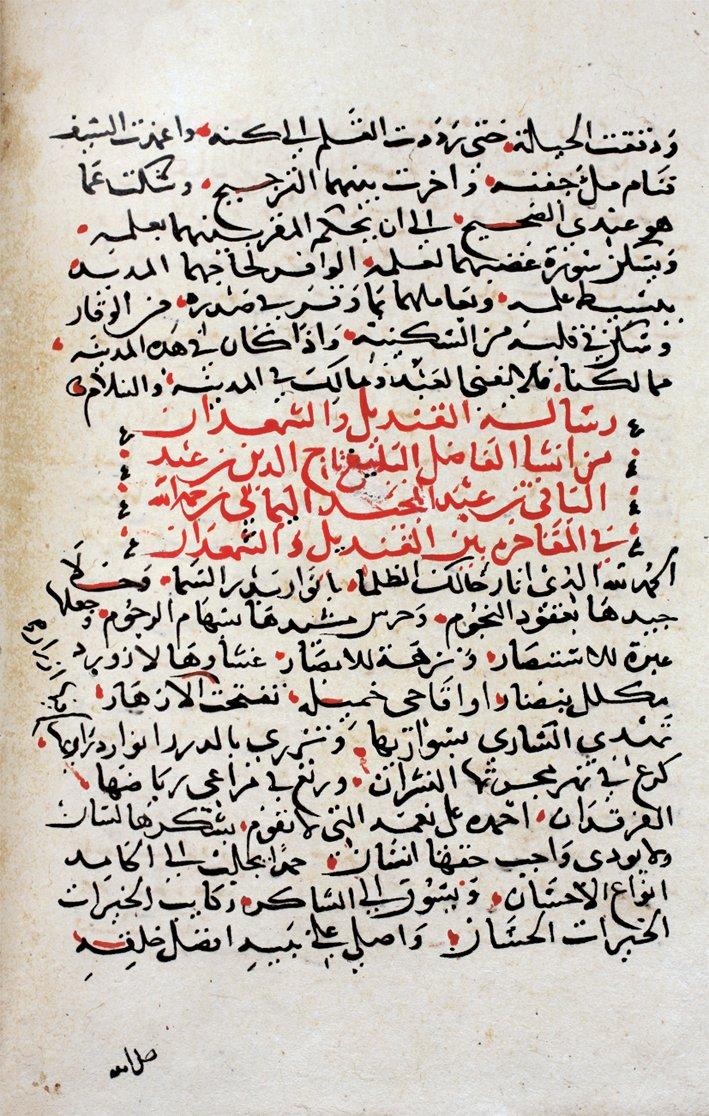 ودققت الحيلة حتى رددت القلم الى كنه واغمدت السيف
فنام ملء جفنه واخرت بينهما الترجيح وسكت عما
هو عندي الصحيح الى ان يحكم المقر بينهما بعلمه
ويسكن سورة غضبهما الوافر لجاجهما المديد
ببسيط علمه ويعاملهما بما وقر في صدره من الوقار
وسكن في قلبه من السكينة واذا كان في هذه المدينة
مالكنا فلا يفتى العبد ومالك في المدينة والسلام
رسالة القنديل والشمعدان
من انشا الفاضل البليغ تاج الدين بن عبد
الباقي بن عبد المجيد اليماني رحمه الله
في المفاخرة بين القنديل والشمعدان
الحمد لله الذي انار حالك الظلما بانوار بدر السما وحلا
جيدها بعقود النجوم وحرس مشيدها بسهام الرجوم وجعلها
عبرة للاستبصار ونزهة للابصار غشاوها لازورد
مكلل بنضار او اقاحي خميلة تفتحت الازهار
تهدي الساري سواريها وتزري بالدرر انوار دراريها
كرع في نهر مجرتها النسران ورتع في مراعي رياضها
الفرقدان احمده على نعمه التي لا يقوم بشكرها لسان
ولا يودي واجب حقها انسان حمدا يجلب الى الحامد
انواع الاحسان ويسوق الى الشاكر ركايب الخيرات
الخيرات الحسان واصلي على نبيه افضل خلقه